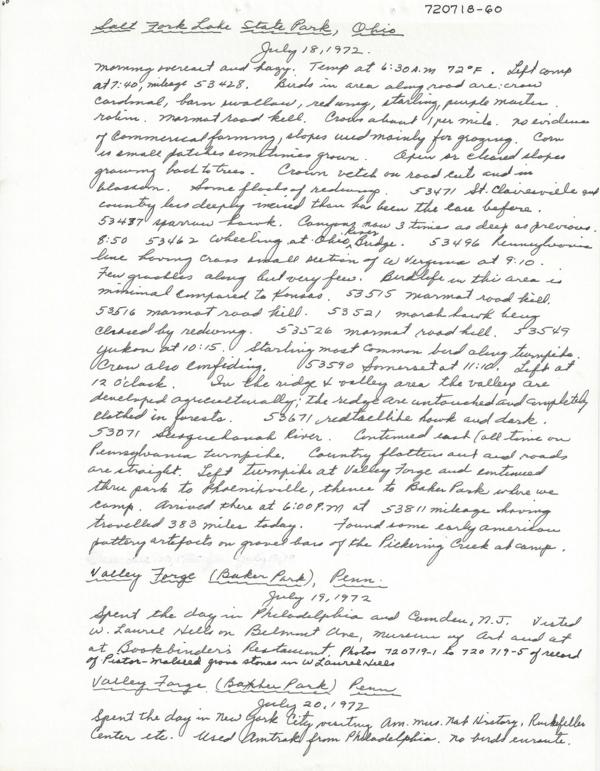 720718-60
Salt Fork Lake State Park, Ohio
July 18, 1972.
Morning overcast and hazy. Temp at 6:30 A.M 72°F. Left camp
at 7:40, mileage 53428. Birds in area along road are: crow
cardinal, barn swallow, redwing, starling, purple martin
robin. Marmot road kill. Crows about 1 per mile. No evidence
of commerical farming, slopes used mainly for grazing. Corn
is small patches sometimes grown. Open or cleared slopes
growing back to trees. Crown vetch on road cuts and in
blossom. Some flocks of redwing. 53471 St. Clairesville and
country less deeply than has been the case before.
53487 sparrow hawk. Canyons now 3 times as deep as previous.
8:50 53462 Wheeling at Ohio River Bridge. 53496 Pennsylvania
line having cross small section of W Virginia at 9:10.
Few grackles along but very few. Birdlife in this area is
minimal compared to Kansas. 53515 marmat road kill.
53516 marmat road kill. 53521 marsh hawk being
chased by redwing. 53526 marmat road kill. 53549
Yukon at 10:15. Starling most common bird along turnpike.
Crow also . 53590 Somerset at 11:10. Left at
12 O'clock. In the ridge & valley area the valleys are
developed agriculturally; the ridge are untouched and completely
clothed in forests. 53671 redtaillike hawk and dark.
53071 River. Continued east (all time on
Pennsylvania turnpike. Country flattens out and roads
are straight. Left turnpike at Valley Forge and continued
thru park to Phoenixville, thence to Baker Park where we
camp. Arrived there at 6:00 P.M at 53811 mileage having
travelled 383 miles today. Found some early american
pottery artefacts on gravel bars of the Pickering Creek at camp.
Valley Forge (Baker Park), Penn.
July 19, 1972
Spent the day in Philadelphia and Camden, N.J. Visted
W. Laurel Hills on Belmont Ave, museum of Art and at
at Bookbinder's Restaurant. Photos 720719-1 to 720719-5 of record
of grave stones in W Laurel Hills
Valley Forge (Baker Park) Penn
July 20, 1972
Spent the day in New York City visiting Am. Mus. Nat History, Rockefeller
Center etc. Used Amtrak from Philadelphia. No birds enroute.